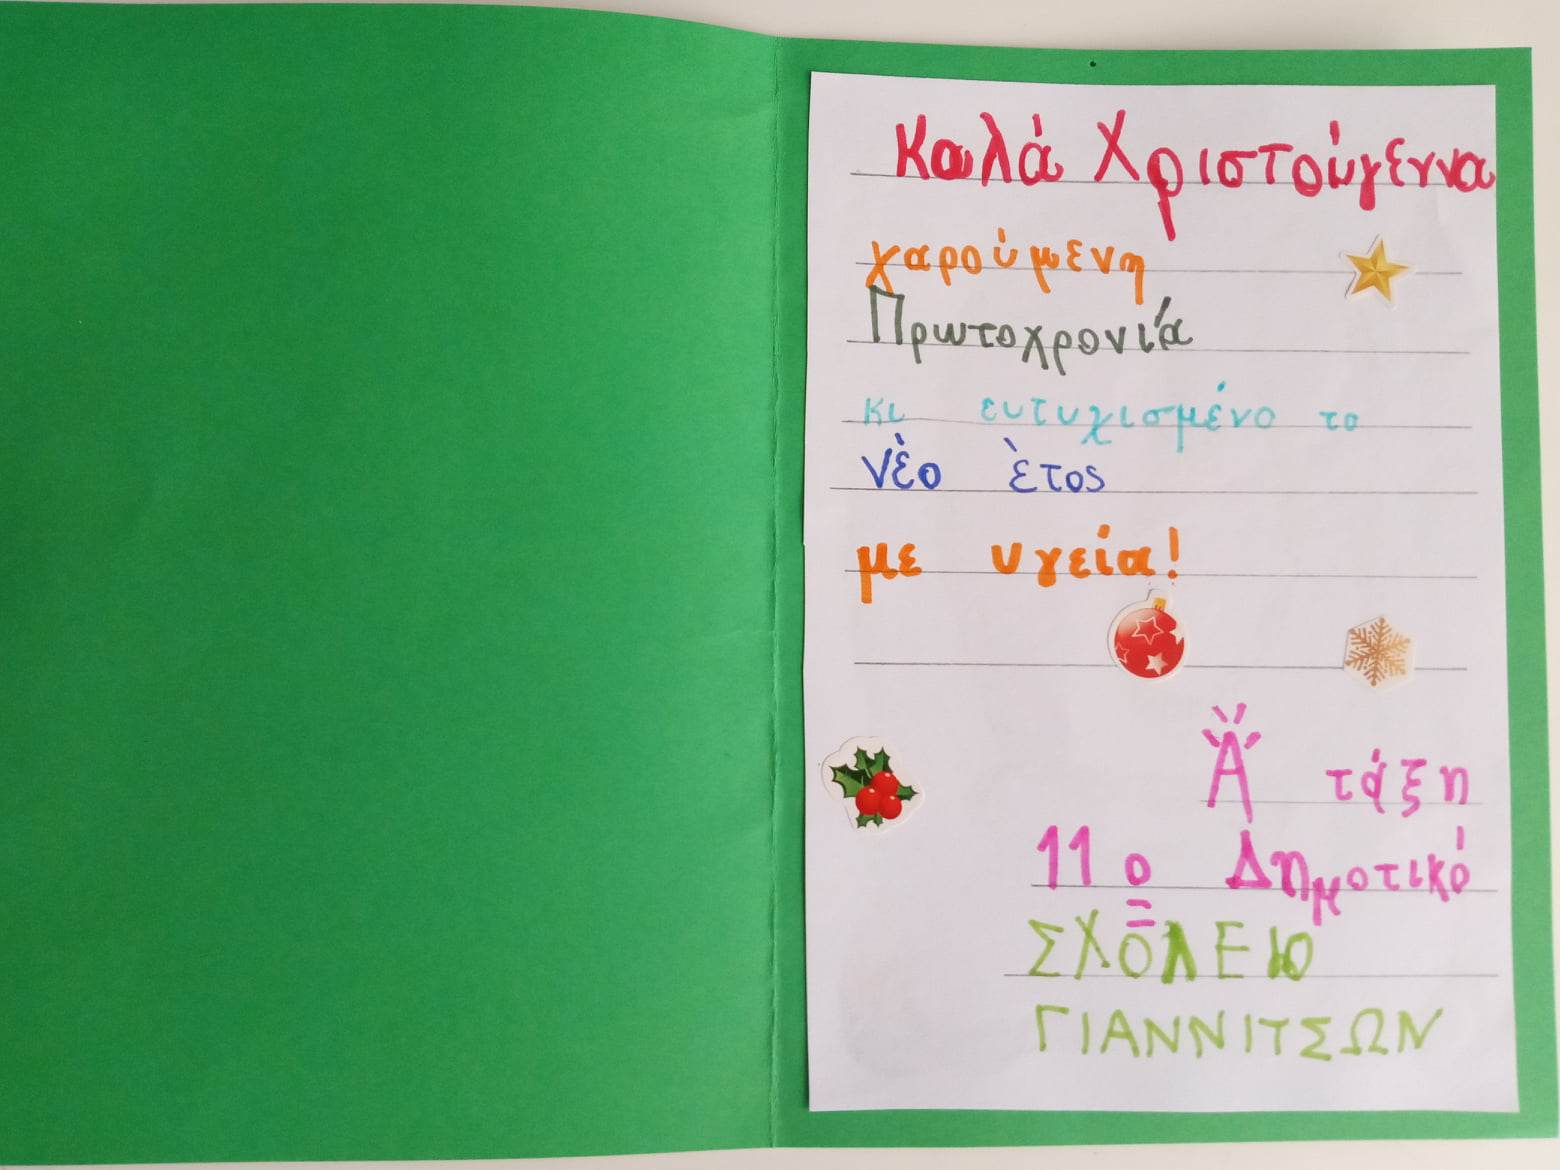 Καλά Χριστούγεννα
χαρούμενη
Πρωτοχρονιά
κι ευτυχισμένο το
νὲο ὲτος
με υγεία!
Ά τάξη
11ο Δημοτικό
ΣΧΟΛΕΙΟ
ΓΙΑΝΝΙΤΣΩΝ